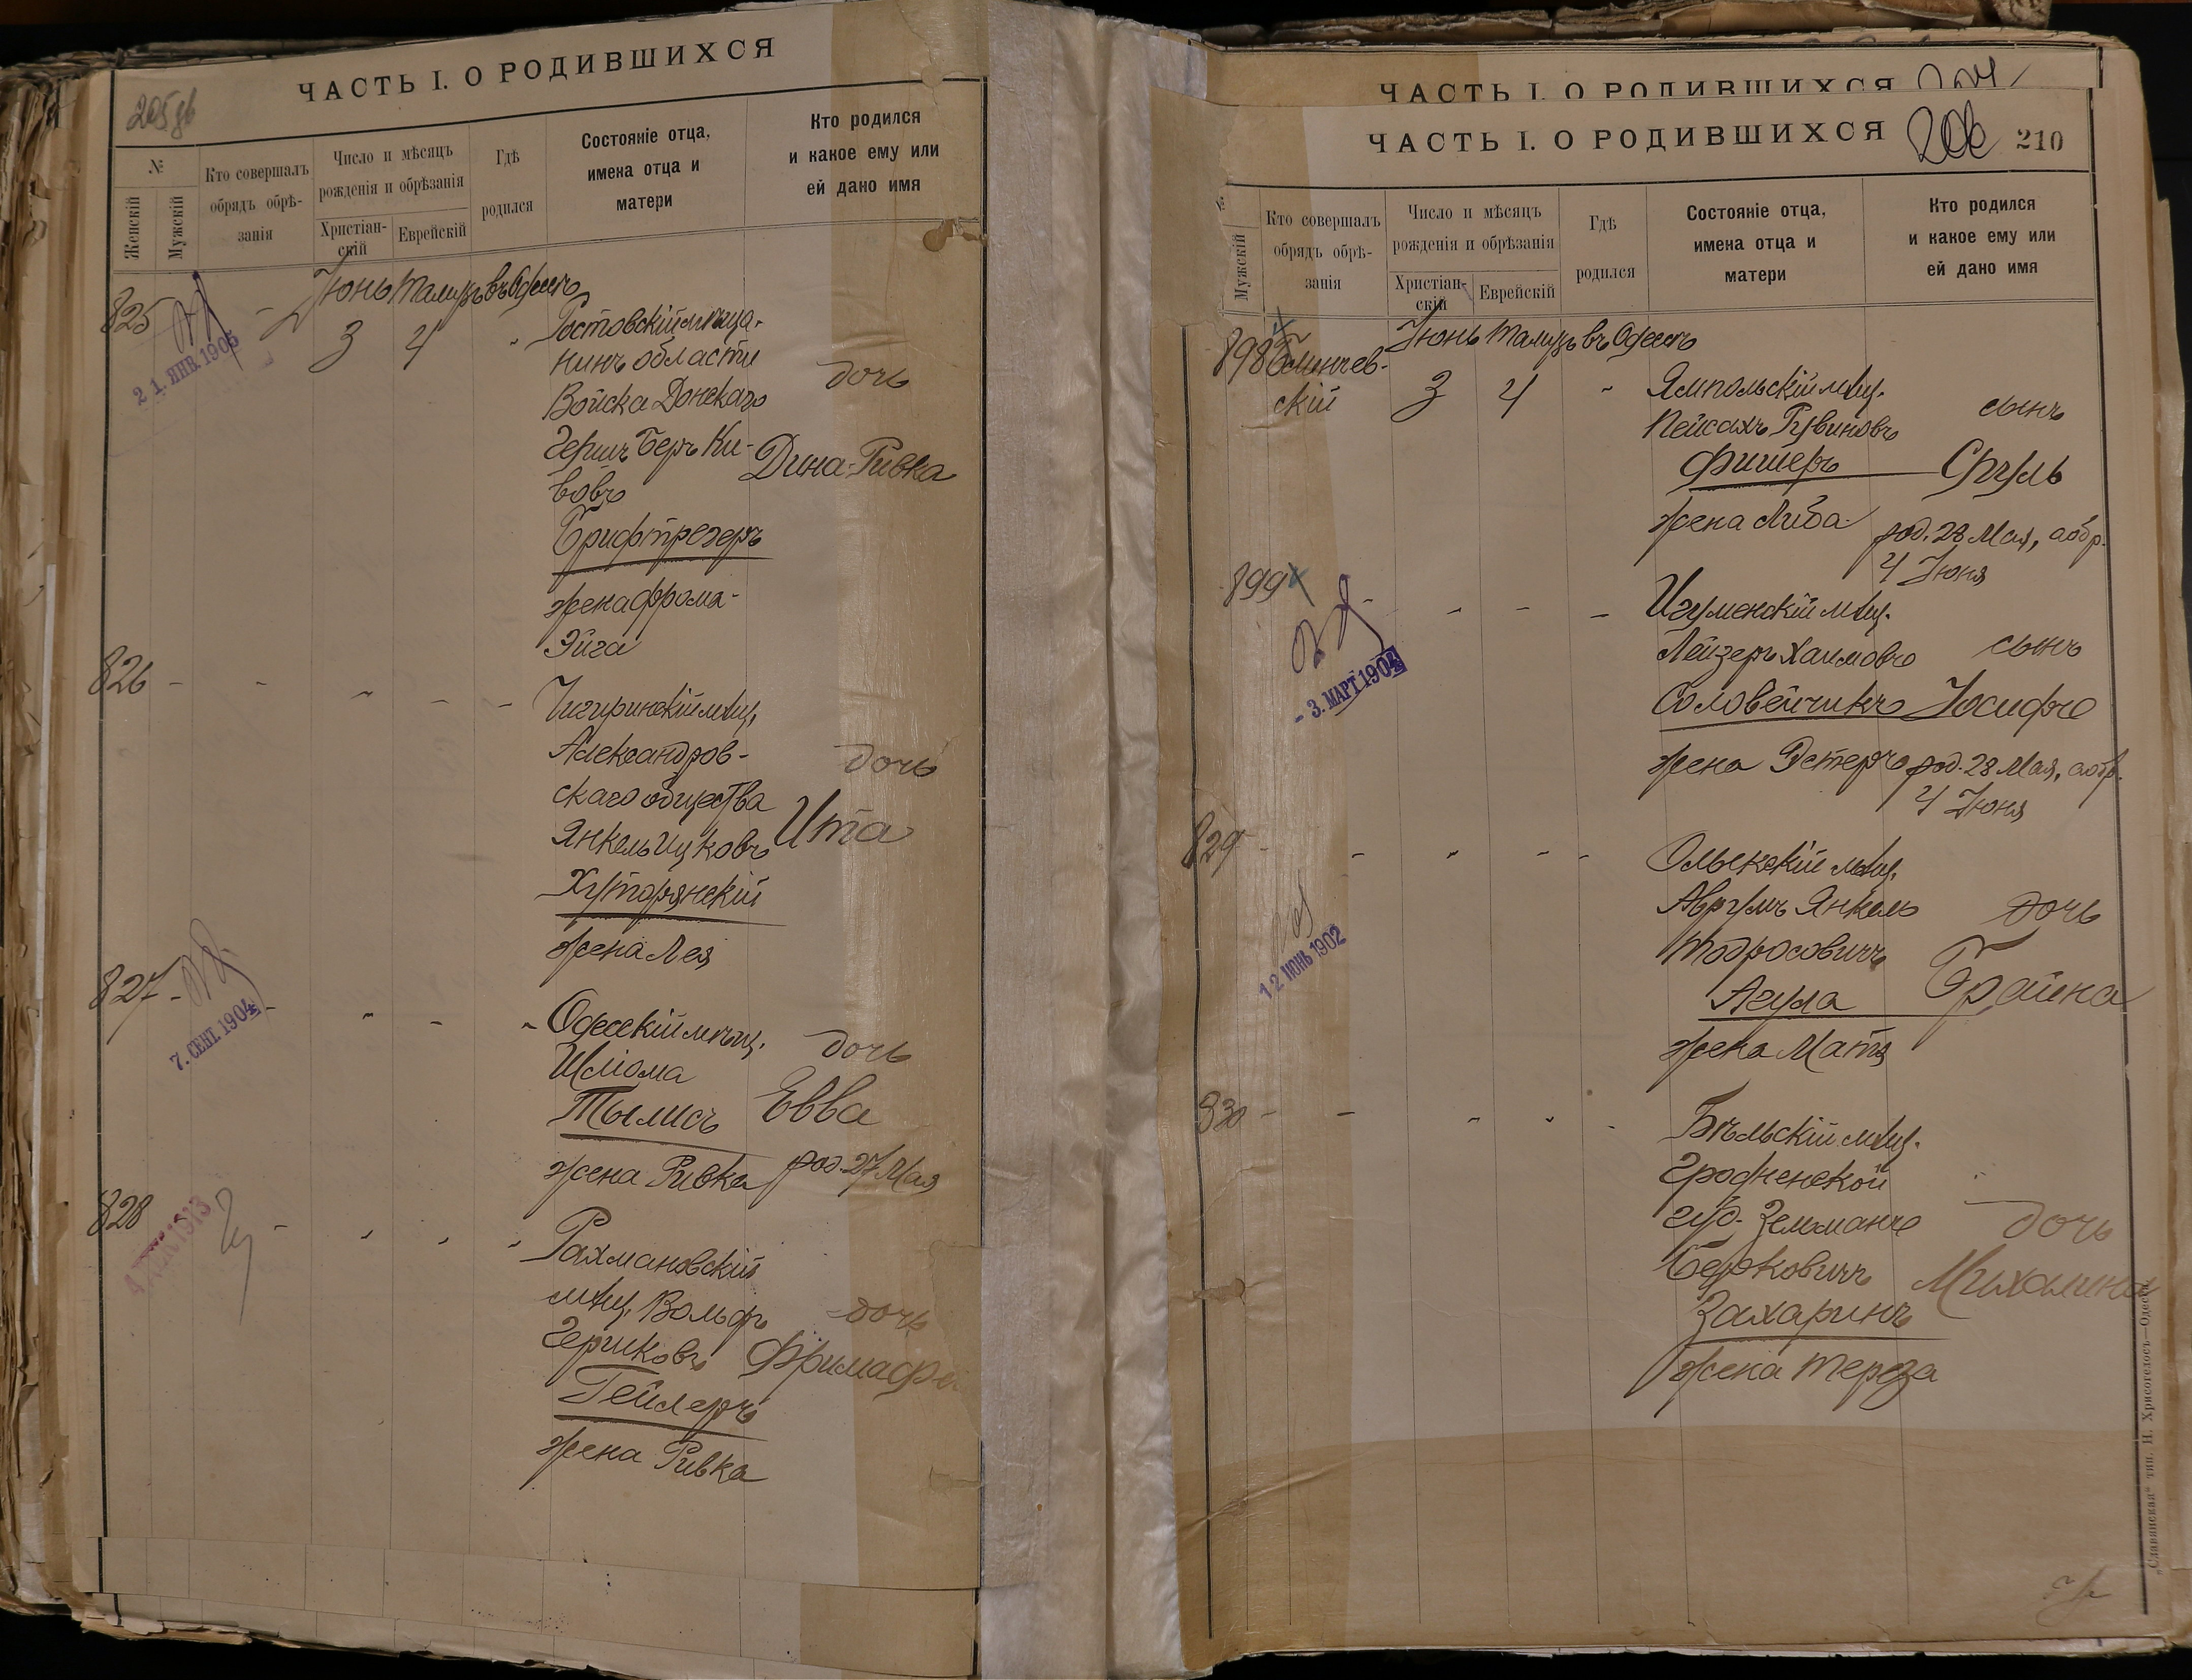 205 об
ЧАСТЬ I. О РОДИВШИХСЯ
№
Женскій
Мужскій
Кто совершалъ
обрядъ обрѣ-
занія
Число и мѣсяцъ
рожденія и обрѣзанія
Христіан-
скій
Еврейскій
Гдѣ
родился
Состояніе отца,
имена отца и
матери
Кто родился
и какое ему или
ей дано имя
Іюнь Тамузъ въ Одессѣ
825
21. ЯНВ. 1905
3 4
Ростовскій мѣща-
нинъ области
Войска Донскаго
дочь
Гершъ Беръ Ки-
вовъ
Дина-Ривка
Брифтрегеръ
жена Фрома-
Эйга
826
Чигиринскій мѣщ.
Александров-
скаго общества
дочь
Янкель Ицковъ
Ита
Хуторянскій
жена Лея
827
7. СЕНТ. 1904
Одесскій мѣщ.
Шліома
дочь
Тылисъ
Евва
жена Ривка
род. 27 Мая
828
1913
Рахмановскій
мѣщ. Вольфъ
дочь
Гершковъ
Фрима
Гейлеръ
жена Ривка
ЧАСТЬ I. О РОДИВШИХСЯ
ЧАСТЬ I. О РОДИВШИХСЯ
206 210
№
Мужскій
Кто совершалъ
обрядъ обрѣ-
занія
Число и мѣсяцъ
рожденія и обрѣзанія
Христіан-
скій
Еврейскій
Гдѣ
родился
Состояніе отца,
имена отца и
матери
Кто родился
и какое ему или
ей дано имя
Іюнь Тамузъ въ Одессѣ
898
скій
3 4
Ямпольскій мѣщ.
Пейсахъ Рувиновъ
сынъ
Фишеръ
Сруль
жена Либа
род. 28 Мая, а обр.
4 Іюня
899
- 3. МАРТ 1904
Игуменскій мѣщ.
Лейзеръ Хаимовъ
сынъ
Соловейчикъ
Іосифъ
жена Эстеръ
род. 28 Мая, а обр.
4 Іюня
829
12 ІЮНЬ 1902
Олыкскій мѣщ.
Аврумъ Янкель
дочь
Тодросовичъ
Брайна
Агула
жена Матя
830
Бѣльскій мѣщ.
Гродненской
губ. Зельманъ
дочь
Берковичъ
Михалина
Захаринъ
жена Тереза
„Славянская“ тип. Н. Хрисогелосъ—Одесса.